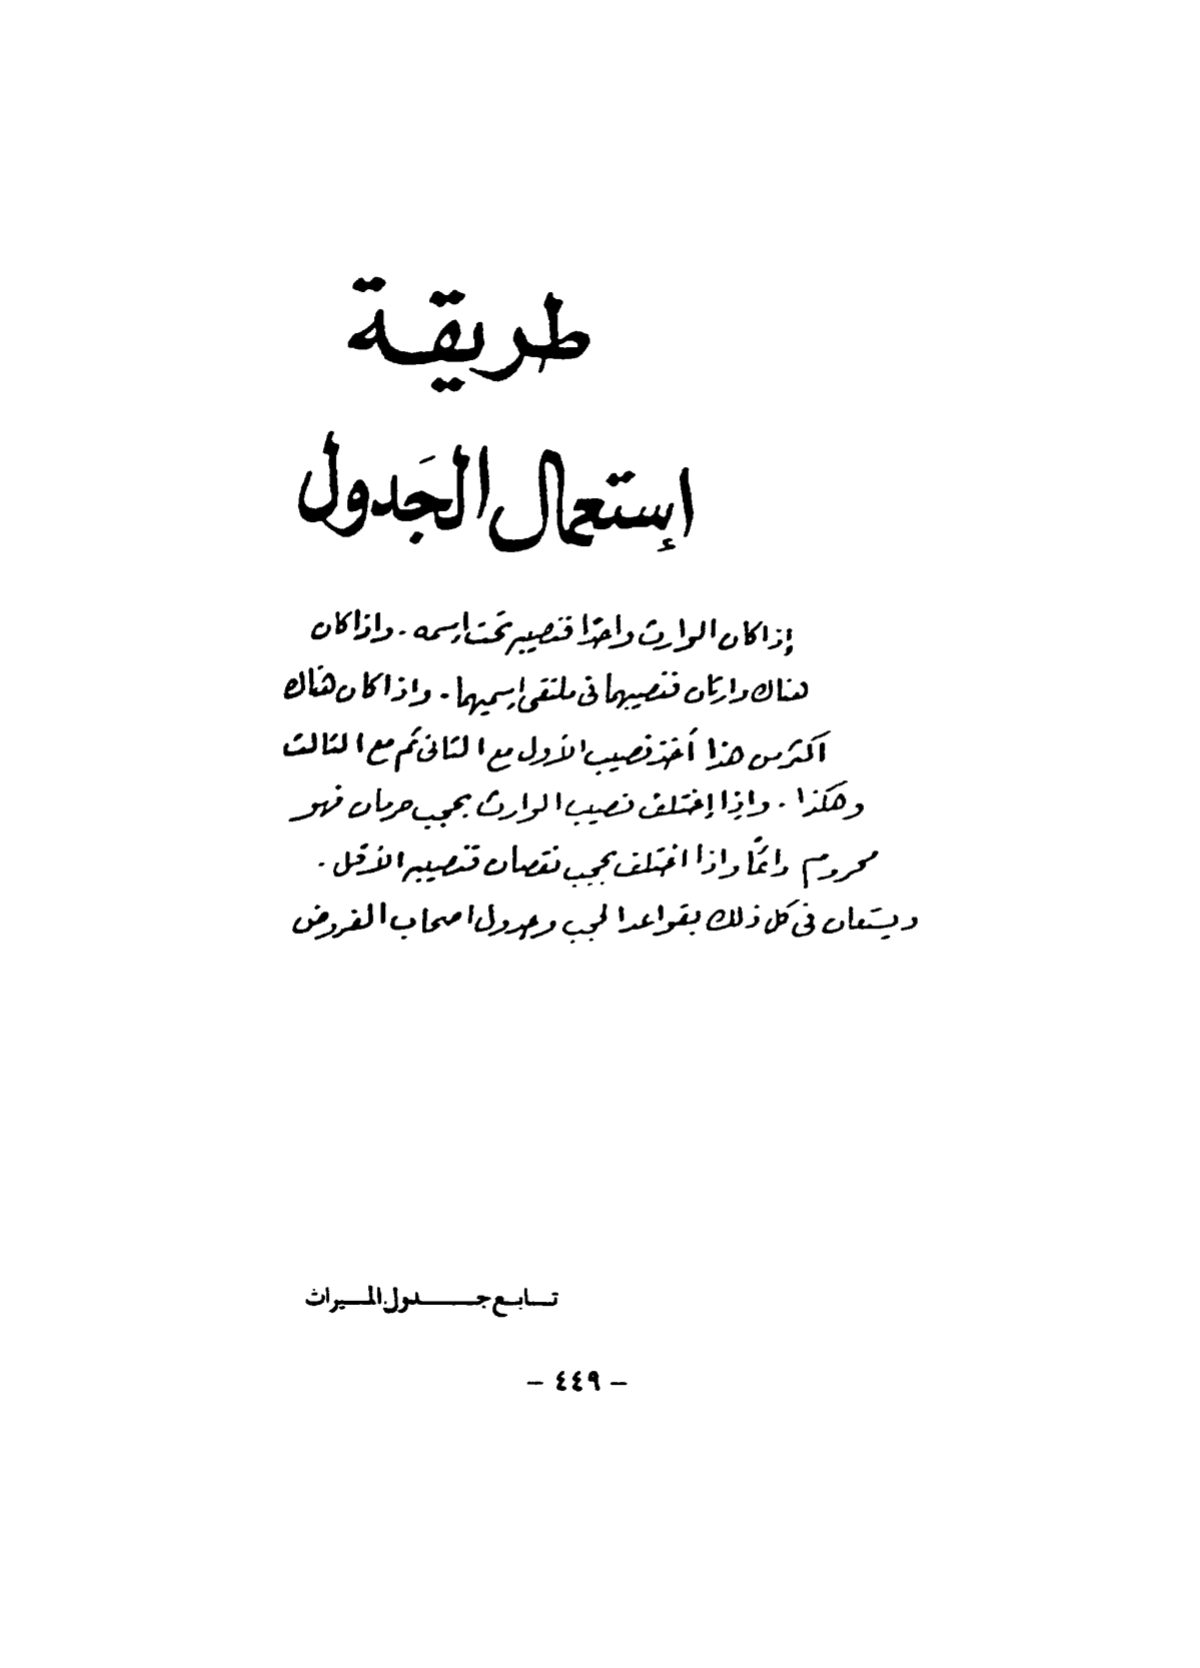 طريقة
إستعمال الجَدول
إذا كان الوارث واحدًا فنصيبه تحت إسمه . واذا كان
هناك وارثان فنصيبهما فى ملتقى إسميهما . واذا كان هناك
أكثر من هذا أخذ نصيب الأول مع الثانى ثم مع الثالث
وهكذا . وإذا إختلف نصيب الوارث بحجب حرمان فهو
محروم دائمًا واذا اختلف بحجب نقصان فنصيبه الأقل .
ويستعان فى كل ذلك بقواعد الحجب وجدول اصحاب الفروض
تـــابـع جــــــدول المـــيراث
– ٤٤٩ –